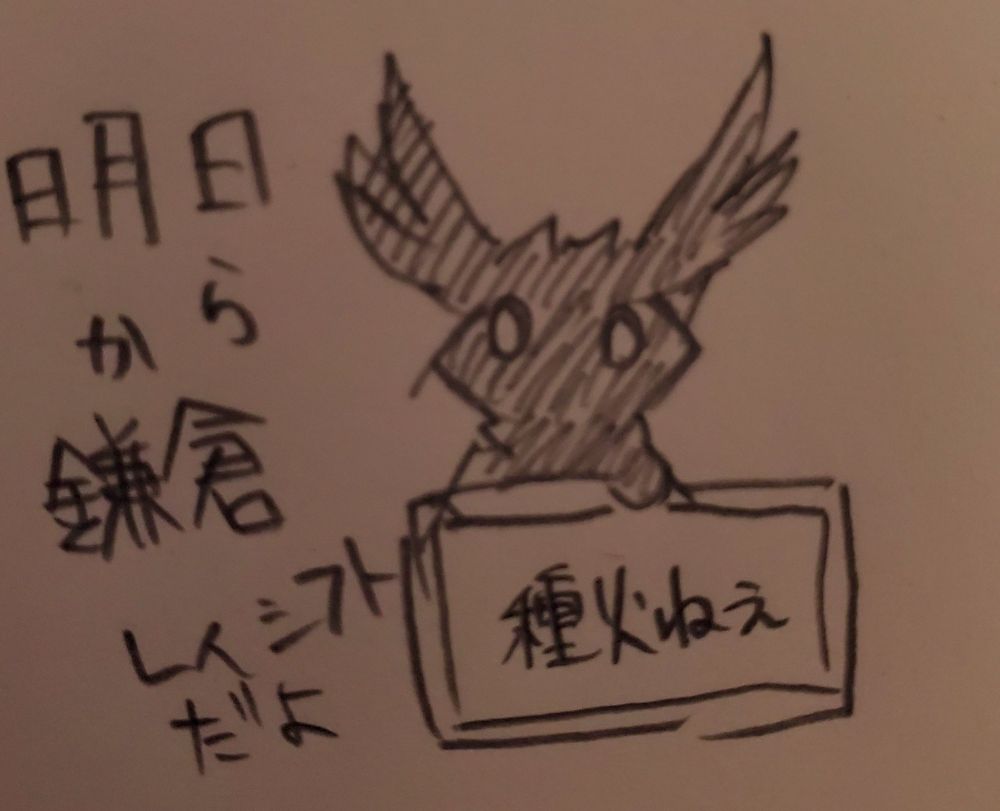 明日
から
鎌倉
レイシフト
だよ
種火ねえ